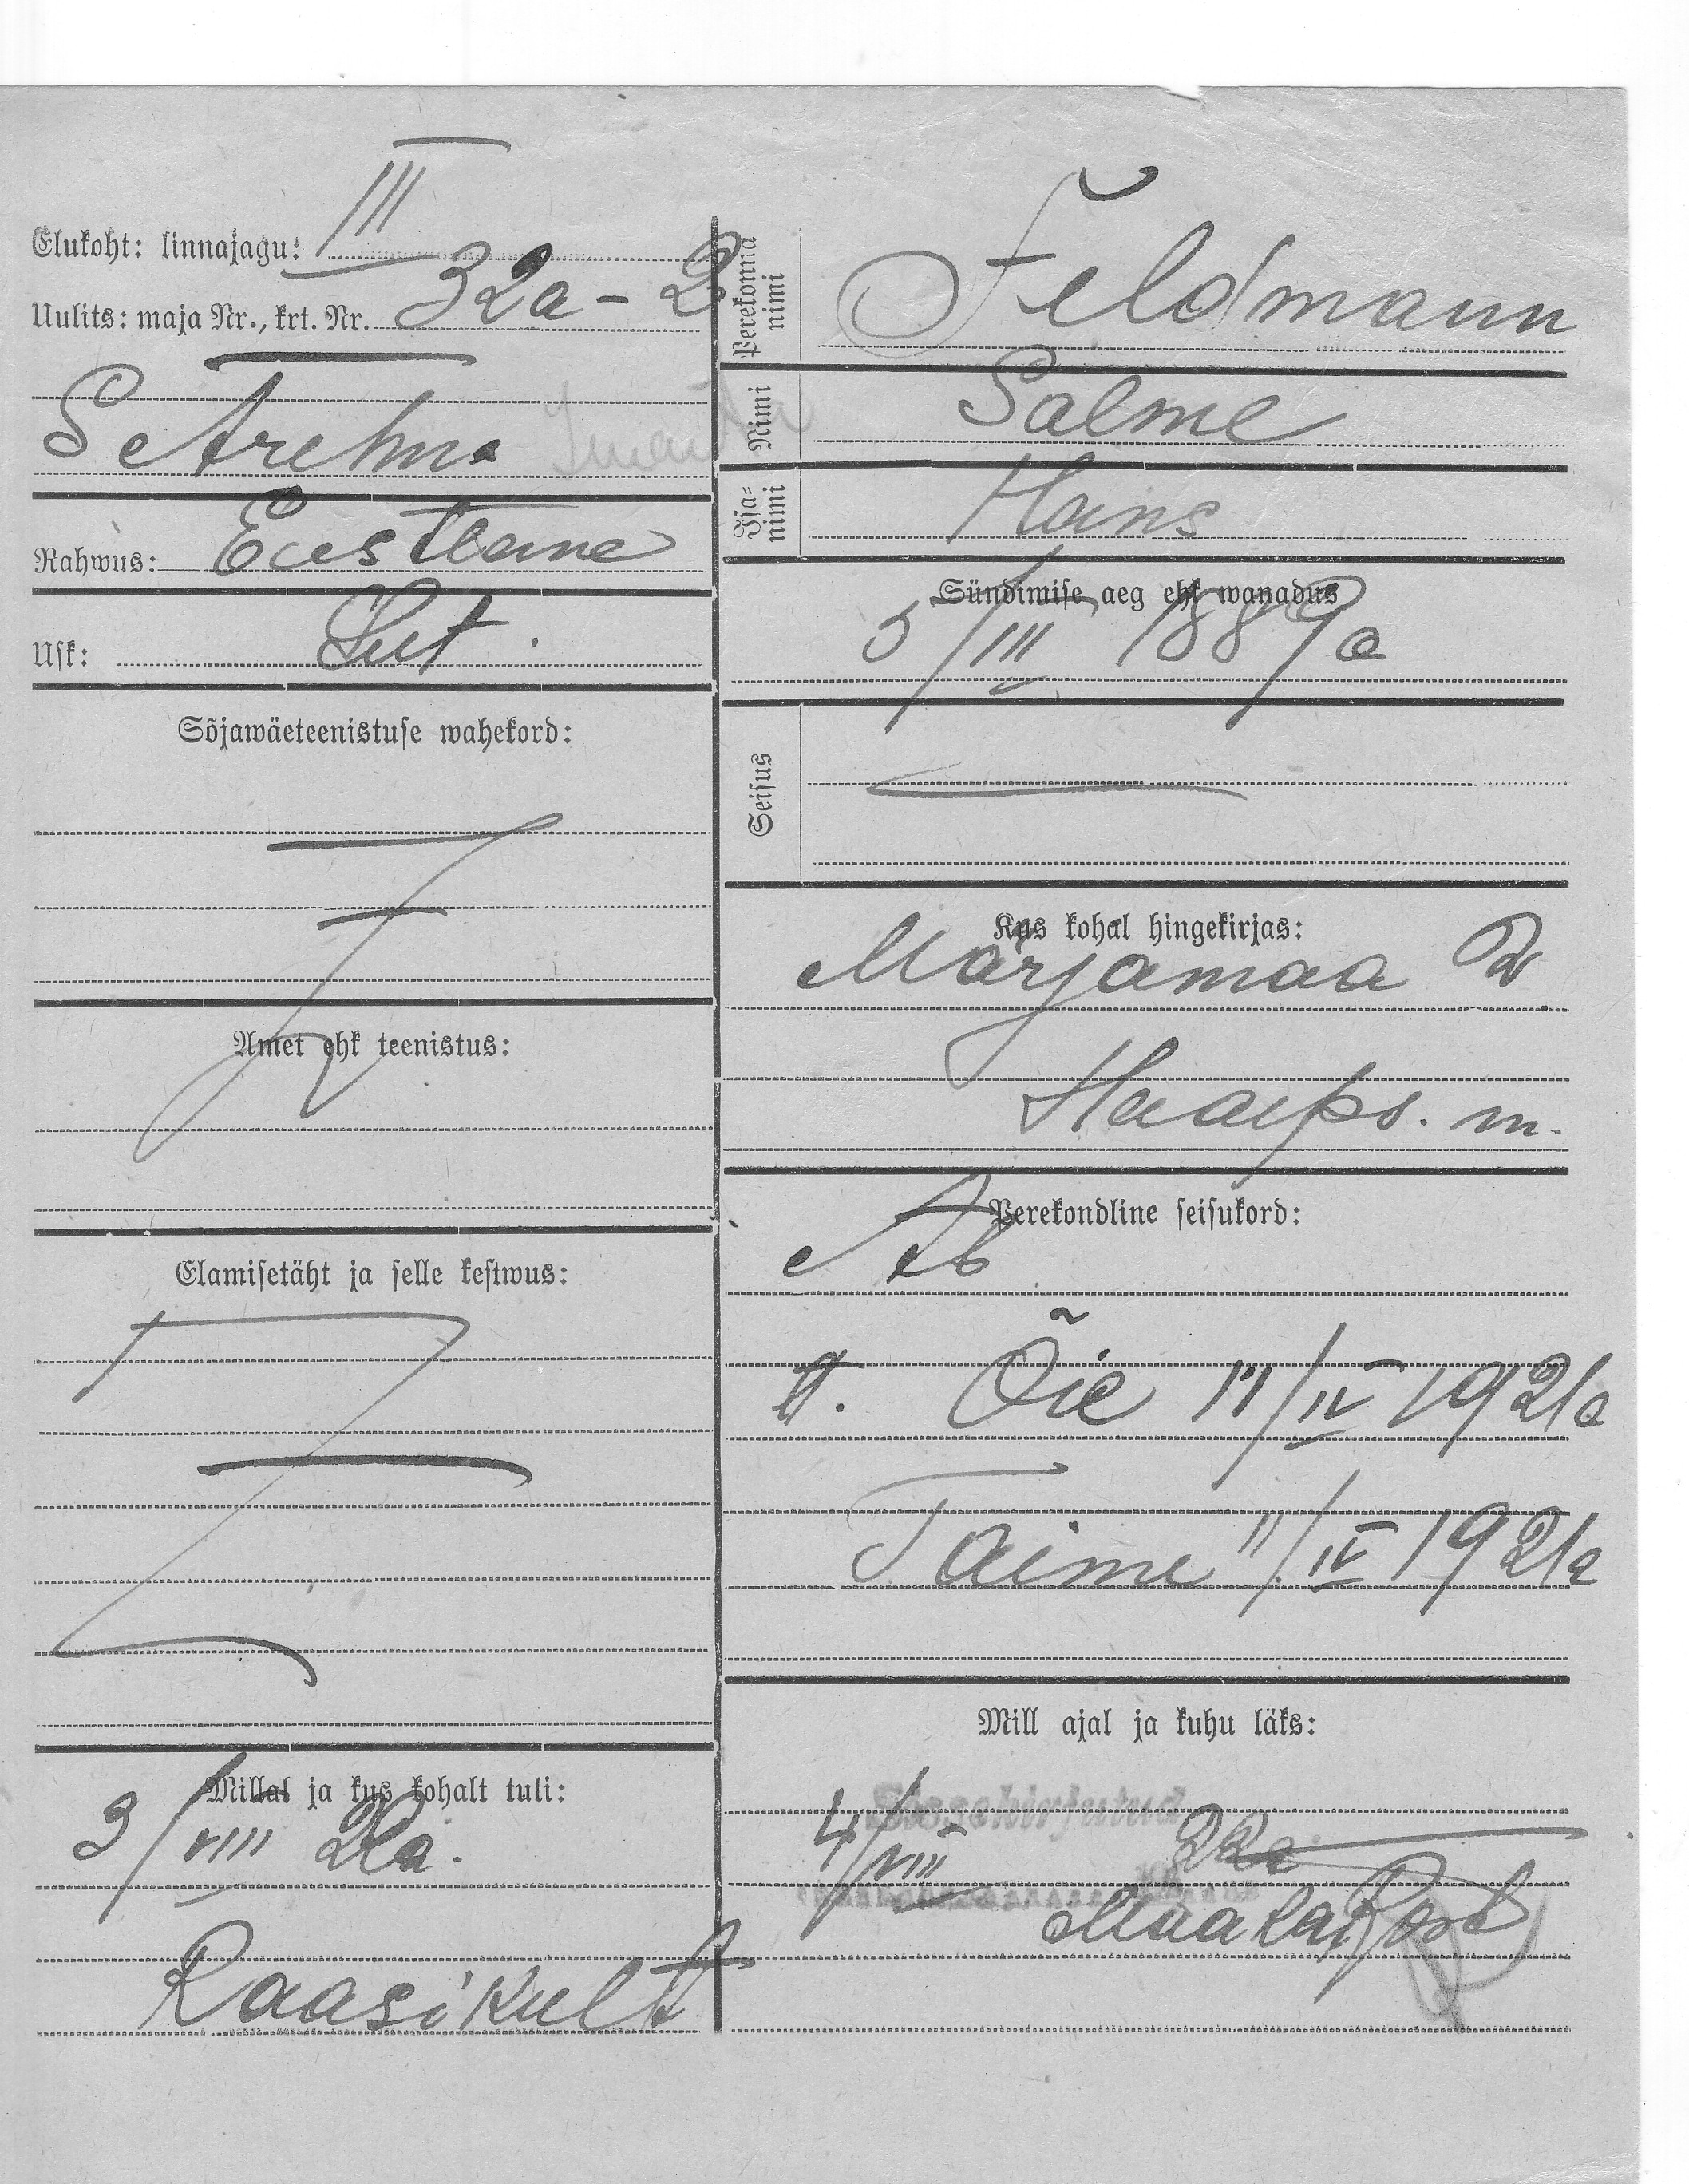 Elukoht: linnajagu: III
Uulits: maja Nr., krt. Nr. 32a - 2
S
Rahwus: Eestlane
Usk: Lut.
Sõjawäeteenistuse wahekord:
Amet ehk teenistus:
Elamisetäht ja selle kestwus:
Millal ja kus kohalt tuli:
3/VIII 21a.
Raasikult
Perekonna nimi Feldmann
Nimi Salme
Isa-nimi Hans
Sündimise aeg ehk wanadus
5/III 1889a
Seisus
Kus kohal hingekirjas:
Märjamaa w.
Haaps. m.
Perekondline seisukord:
Ab
t. Õie 11/IV 1921a
Taime 11/IV 1921a
Mill ajal ja kuhu läks:
Sissekirjutud
4/VIII 22a